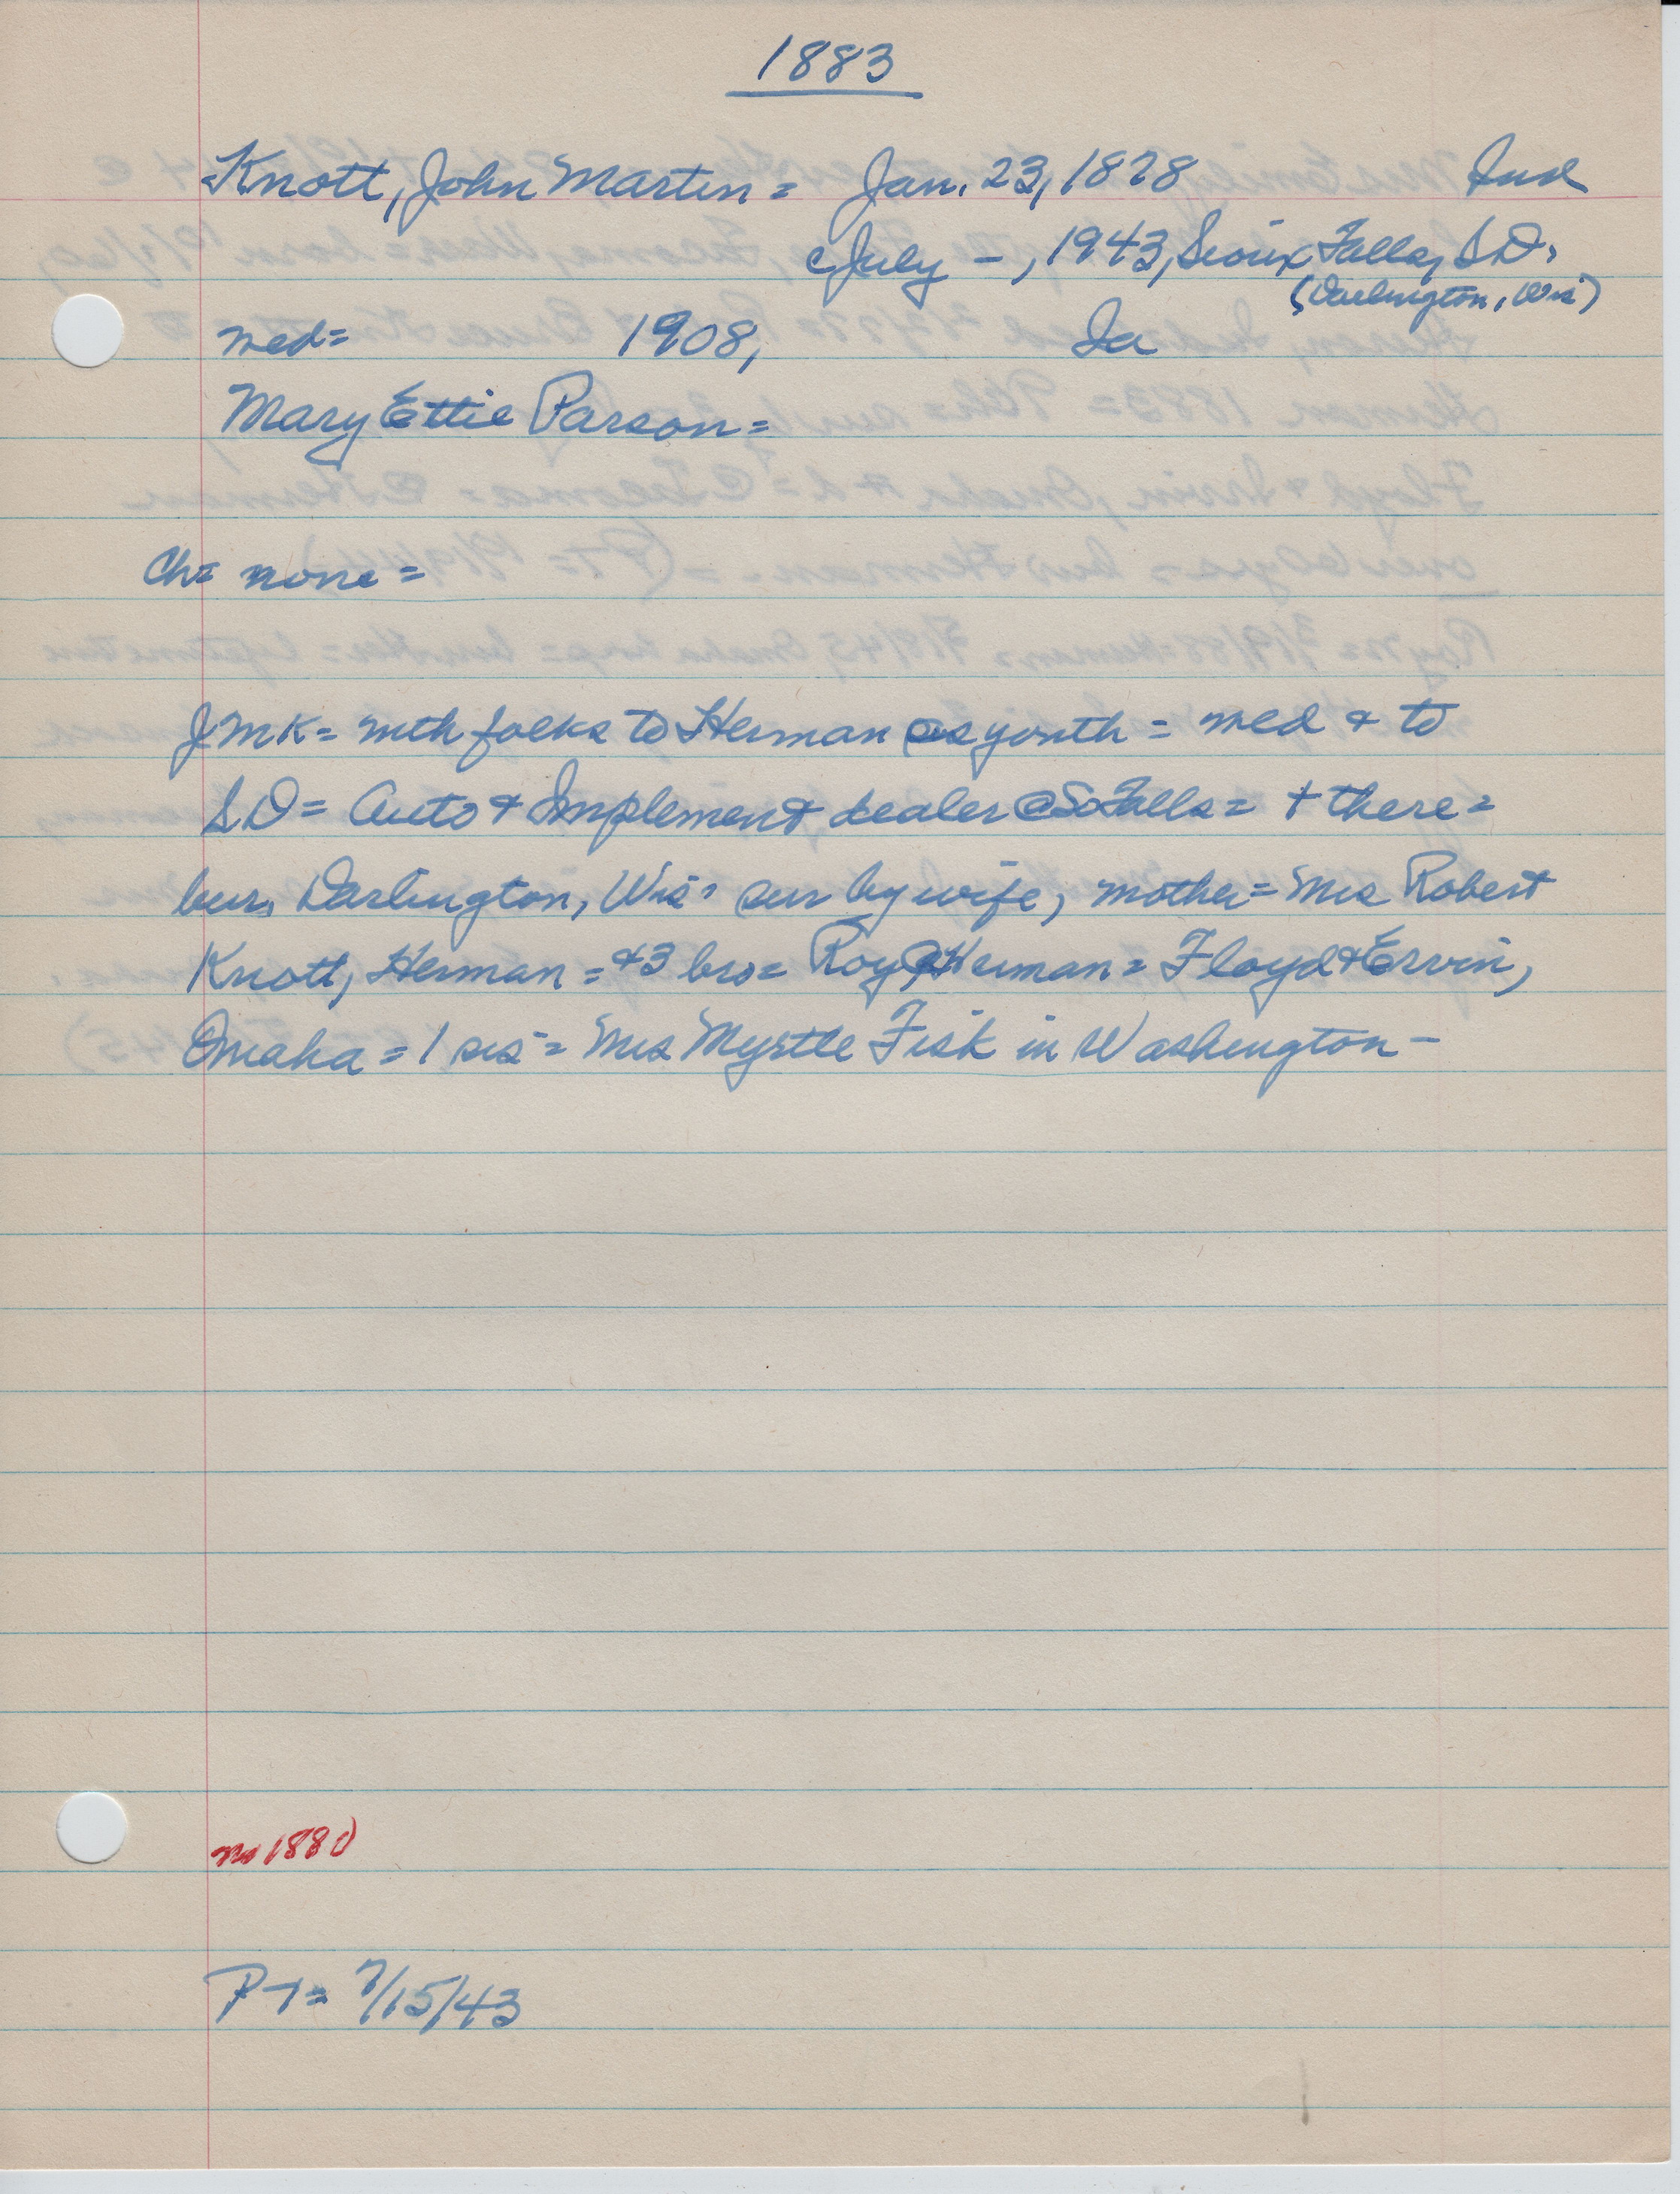 1883
Knott, John Martin = Jan. 23, 1878 Ind
c July - , 1943, Sioux Falls, S.D.
(Darlington, Wis)
med = 1908, Ia
Mary Ettie Parson =
Ch = none =
JMK = with folks to Herman as youth = med & to
SD = Auto & Implement dealer @ So Falls = + there =
bur. Darlington, Wis = sur by wife, mother = Mrs Robert
Knott, Herman = & 3 bro = Roy @ Herman = Floyd & Ervin,
Omaha = 1 sis = Mrs Myrtle Fisk in Washington -
no 1880
PT = 7/15/43